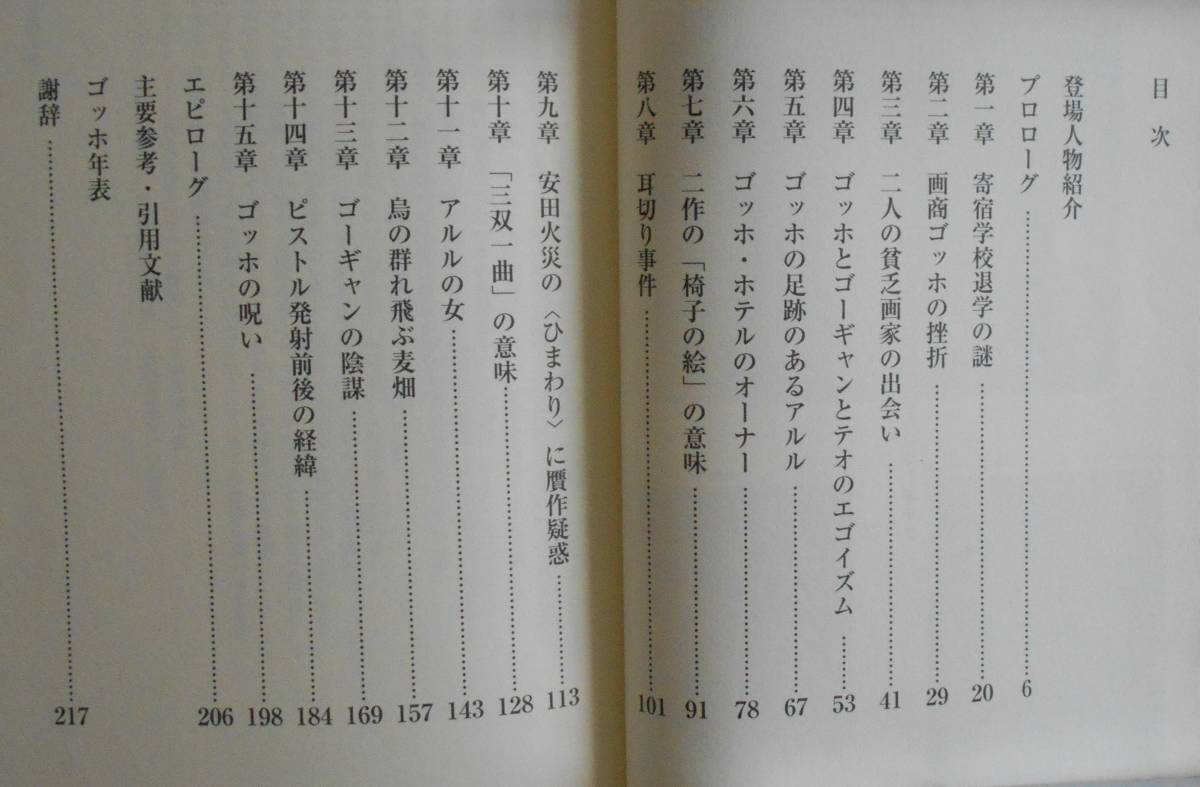 目次
登場人物紹介
プロローグ……6
第一章 寄宿学校退学の謎……20
第二章 画商ゴッホの挫折……29
第三章 二人の貧乏画家の出会い……41
第四章 ゴッホとゴーギャンとテオのエゴイズム……53
第五章 ゴッホの足跡のあるアルル……67
第六章 ゴッホ・ホテルのオーナー……78
第七章 二作の「椅子の絵」の意味……91
第八章 耳切り事件……101
第九章 安田火災の〈ひまわり〉に贋作疑惑……113
第十章 「三双一曲」の意味……128
第十一章 アルルの女……143
第十二章 烏の群れ飛ぶ麦畑……157
第十三章 ゴーギャンの陰謀……169
第十四章 ピストル発射前後の経緯……184
第十五章 ゴッホの呪い……198
エピローグ……206
主要参考・引用文献
ゴッホ年表
謝辞……217